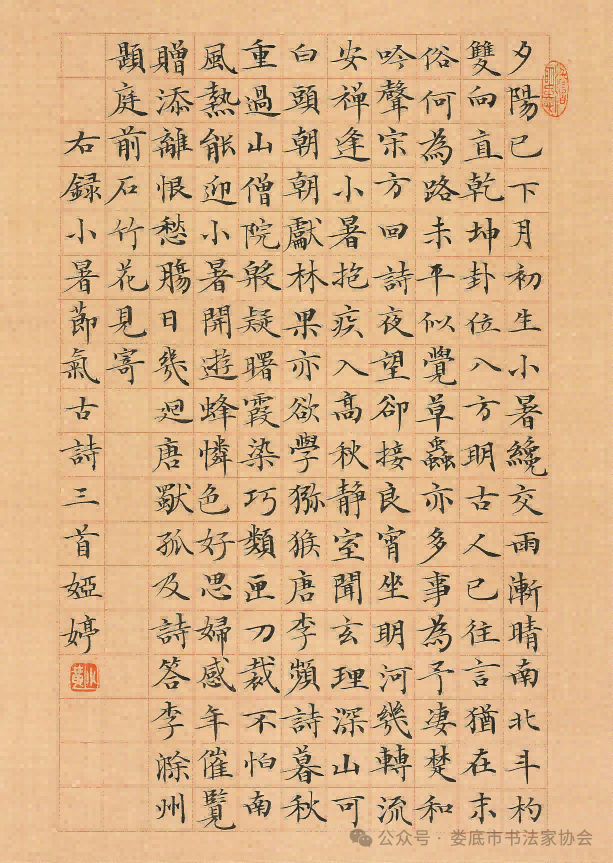 夕陽已下月初生小暑纔交雨漸晴南北斗杓
雙向直乾坤卦位八方明古人已往言猶在末
俗何為路未平似覺草蟲亦多事為予凄楚和
吟聲宋方回詩夜望卻接良宵坐明河幾轉流
安禅逢小暑抱疾入高秋静室聞玄理深山可
白頭朝朝獻林果亦欲學猕猴唐李頻詩暮秋
重過山僧院殷疑曙霞染巧類匣刀裁不怕南
風熱能迎小暑開遊蜂憐色好思婦感年催覽
贈添離恨愁腸日幾迴唐獨孤及詩答李滁州
題庭前石竹花見寄
右録小暑節氣古詩三首婭婷
公众号 · 娄底市书法家协会